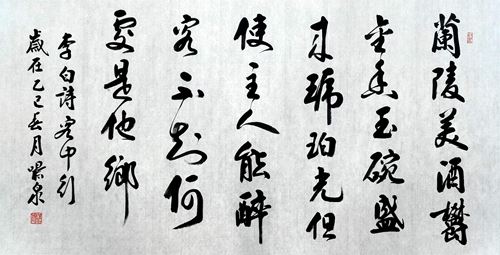 蘭陵美酒鬱
金香玉碗盛
来琥珀光但
使主人能醉
客不知何
處是他鄉
李白詩客中行
歲在乙巳春月